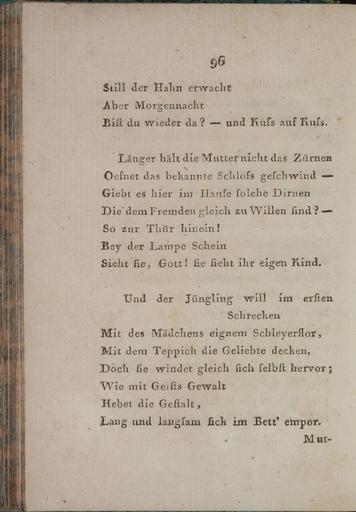 96
Still der Hahn erwacht
Aber Morgennacht
Biſt du wieder da? — und Kuſs auf Kuſs.
Länger hält die Mutter nicht das Zürnen
Oefnet das bekannte Schloſs geſchwind —
Giebt es hier im Hauſe ſolche Dirnen
Die dem Fremden gleich zu Willen ſind? —
So zur Thür hinein!
Bey der Lampe Schein
Sieht ſie, Gott! ſie ſieht ihr eigen Kind.
Und der Jüngling will im erſten
Schrecken
Mit des Mädchens eignem Schleyerflor,
Mit dem Teppich die Geliebte decken,
Doch ſie windet gleich ſich ſelbſt hervor;
Wie mit Geiſts Gewalt
Hebet die Geſtalt,
Lang und langſam ſich im Bett' empor.
Mut-